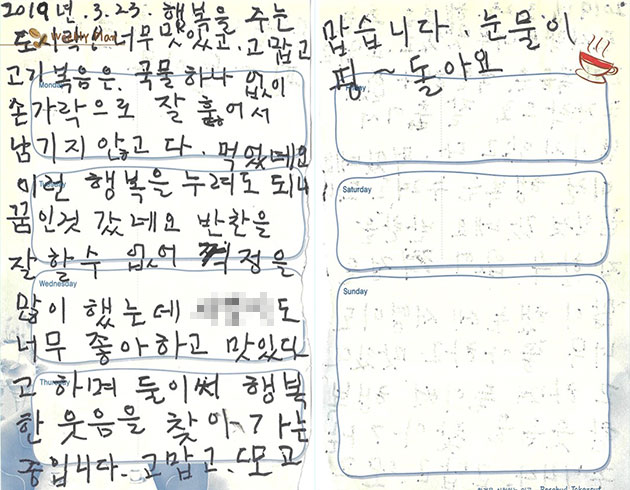 2019년.3.23. 행복을 주는
도시락이 너무 맛있고. 고맙고
Weekly Plan
고기볶음은. 국물 하나 없이
Monday
손가락으로 잘 훑어서
남기지 않고 다. 먹었네요
이런 행복을 누려도 되나
꿈인것 갔네요 반찬을
잘 할수 없어 걱정을
Wednesday
많이 했눈데 도
너무 좋아하고 맛있다
고 하며 둘이써 행복
Thursday
한 웃음을 찾아 가는
중입니다. 고맙고. 또 고
맙습니다. 눈물이
핑~ 돌아요
Saturday
Sunday